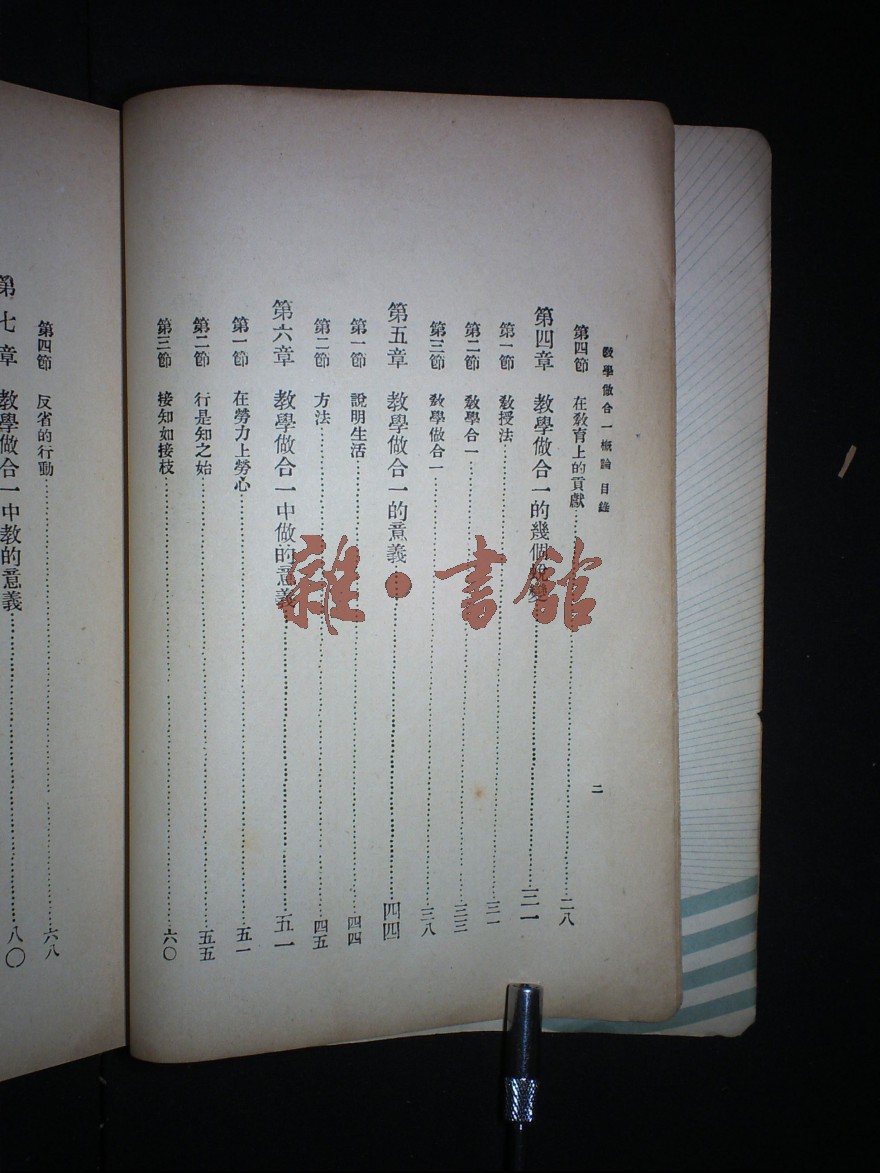 教學做合一概論 目錄
二
第四節 在教育上的貢獻 二八
第四章 教學做合一的幾個蛻變 三一
第一節 教授法 三一
第二節 教學合一 三三
第三節 教學做合一 三八
第五章 教學做合一的意義 四四
第一節 說明生活 四四
第二節 方法 四五
第六章 教學做合一中做的意義 五一
第一節 在勞力上勞心 五一
第二節 行是知之始 五五
第三節 接知如接枝 六〇
第四節 反省的行動 六八
第七章 教學做合一中教的意義 八〇
雜·書館